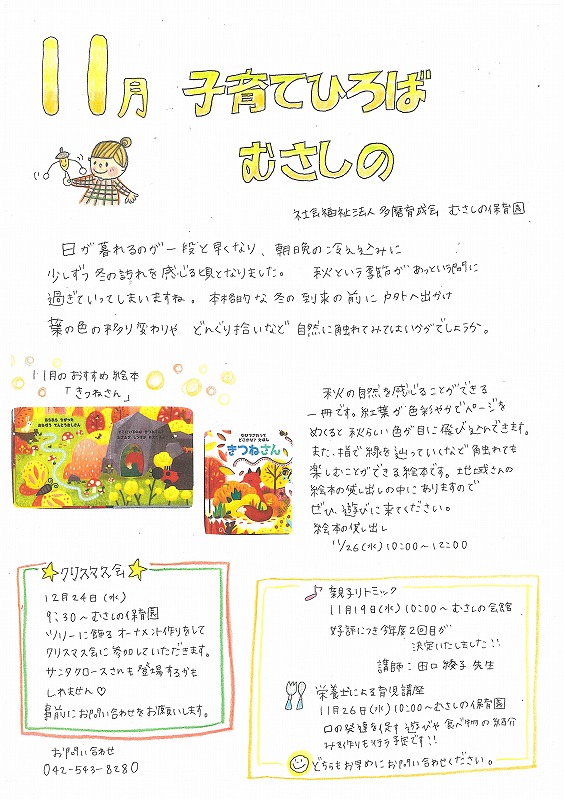 11月 子育てひろば
むさしの
社会福祉法人 多摩育成会 むさしの保育園
日が暮れるのが一段と早くなり、朝晩の冷え込みに
少しずつ冬の訪れを感じる頃となりました。 秋という季節があっという間に
過ぎていってしまいますね。本格的な冬の到来の前に戸外へ出かけ
葉の色の移り変わりや どんぐり拾いなど 自然に触れてみてはいかがでしょうか。
11月のおすすめ絵本
「きつねさん」
きつねさん
秋の自然を感じることができる
一冊です。紅葉が色彩やかでページを
めくると秋らしい色が目に飛び込んできます。
また、指で線を辿っていくなど触れても
楽しむことができる絵本です。地域さんの
絵本の貸し出しの中にありますので
ぜひ、遊びに来てください。
絵本の貸し出し
11/26(水)10:00~12:00
クリスマス会
12月24日(水)
9:30~むさしの保育園
ツリーに飾るオーナメント作りをして
クリスマス会に参加していただきます。
サンタクロースさんも登場するかも
しれません♡
事前にお問い合わせをお願いします。
お問い合わせ
042-543-8280
♪ 親子リトミック
11月19日(水)10:00~むさしの会館
好評につき今年度2回目が
決定いたしました!!
講師:田口 綾子 先生
栄養士による育児講座
11月26日(水)10:00~むさしの保育園
口の発達を促す遊びや食べ物の紹介
みそ作りも行う予定です!!
どちらもお早めにお問い合わせください。